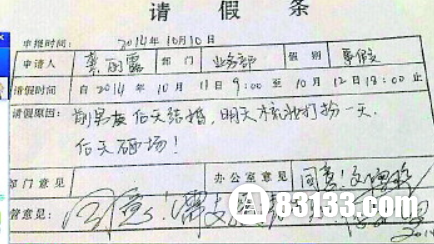 请假条
申报时间: 2014年10月10日
申请人 龚丽露 部门 业务部 假别 事假
请假时间: 自 2014年 10月 11日 9:00 至 10月 12日 18:00 止
请假原因: 前男友后天结婚,明天梳妆打扮一天,
后天砸场!
部门意见 办公室意见 同意!
管意见: 同意!需支
83133.com
2014